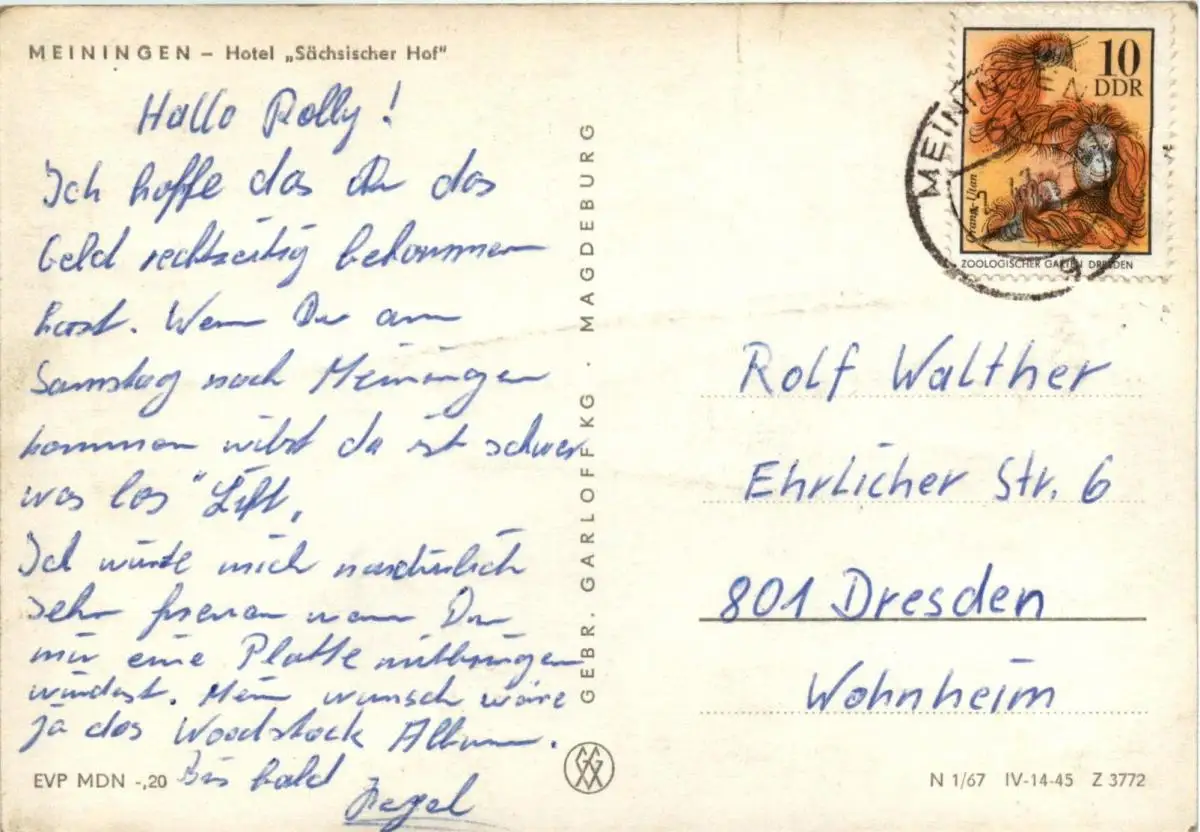 MEININGEN – Hotel „Sächsischer Hof"
Hallo Rolly!
Ich hoffe das Du das
Geld rechtzeitig bekommen
hast. Wenn Du am
Samstag nach Meiningen
kommen wilst da ist schwer
was los "Lift,
Ich würte mich natürlich
sehr freuen wenn Du
mir eine Platte mitbringen
würdest. Mein wunsch wäre
ja das Woodstock Album.
Bis bald
EVP MDN -,20
GEBR. GARLOFF KG · MAGDEBURG
10
DDR
Orang-Utan
ZOOLOGISCHER GARTEN DRESDEN
MEININGEN
Rolf Walther
Ehrlicher Str. 6
801 Dresden
Wohnheim
N 1/67 IV-14-45 Z 3772